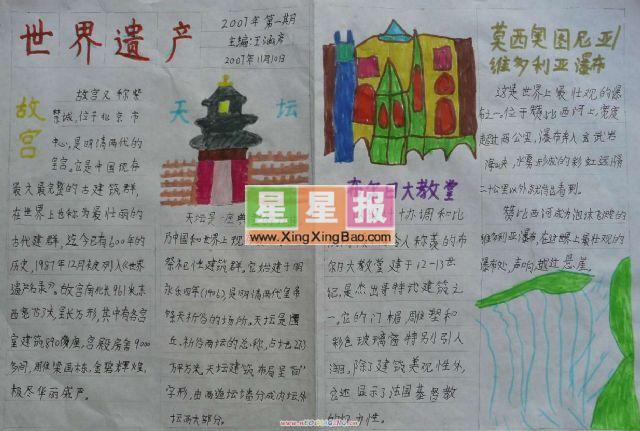 世界遗产
2007年第一期
主编:王涵彦
2007年11月10日
故宫
故宫又称紫
禁城,位于北京市
中心,是明清两代的
皇宫。它是中国现存
最大最完整的古建筑群,
在世界上也称为最壮丽的
古代建群,迄今已有600年的
历史,1987年12月被列入《世界
遗产名录》。故宫南北长961米东
西宽753米,呈长方形,其中有各宫
室建筑890座,宫殿房舍9000
多间,雕梁画栋,金碧辉煌,
极尽华丽威严。
天坛
天坛是
乃中国和世界上现
祭祀性建筑群。它始建于明
永乐四年(1406),是明清两代皇帝
祭天祈谷的场所。天坛是圜
丘、祈谷两坛的总称,占地273
万平方米,天坛建筑布局呈“回”
字形,由两道坛墙分成内坛外
坛两大部分。
大教堂
协调和比
令人称羡的布
尔日大教堂建于12-13世
纪,是杰出哥特式建筑之
一,它的门楣雕塑和
彩色玻璃窗特别引人
湖,除了建筑美观性外,
它还显示了法国基督教
的
莫西奥图尼亚/
维多利亚瀑布
这是世界上最壮观的瀑
布之一。位于赞比西河上,宽度
超过两公里,瀑布奔入玄武岩
海峡,水雾形成的彩虹远隔
二十公里以外就能看到。
赞比西河成为泡沫飞溅的
维多利亚瀑布,在这世界上最壮观的
瀑布处,声响越过悬崖。
星星报
www.XingXingBao.com